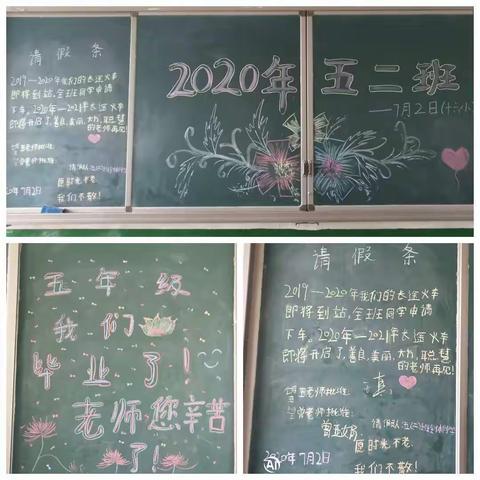 请 假 条
2019—2020年我们的长途火车
即将到站,全班同学申请
下车,2020年—2021年长途火车
即将开启了,善良,美丽,大方,聪慧
的老师再见!
望老师批准
望老师批准:
愿时光不老
我们不散!
2020年7月2日
2020年 五 二 班
—7月2日
五 年 级
我 们
毕 业 了!
老师,您辛苦
了!
请 假 条
2019—2020年我们的长途火车
即将到站,全班同学申请
下车,2020年—2021年长途火车
即将开启了,善良,美丽,大方,聪慧
的老师再见!
老师批准:
老师批准:
愿时光不老
2020年7月2日
我们不散!